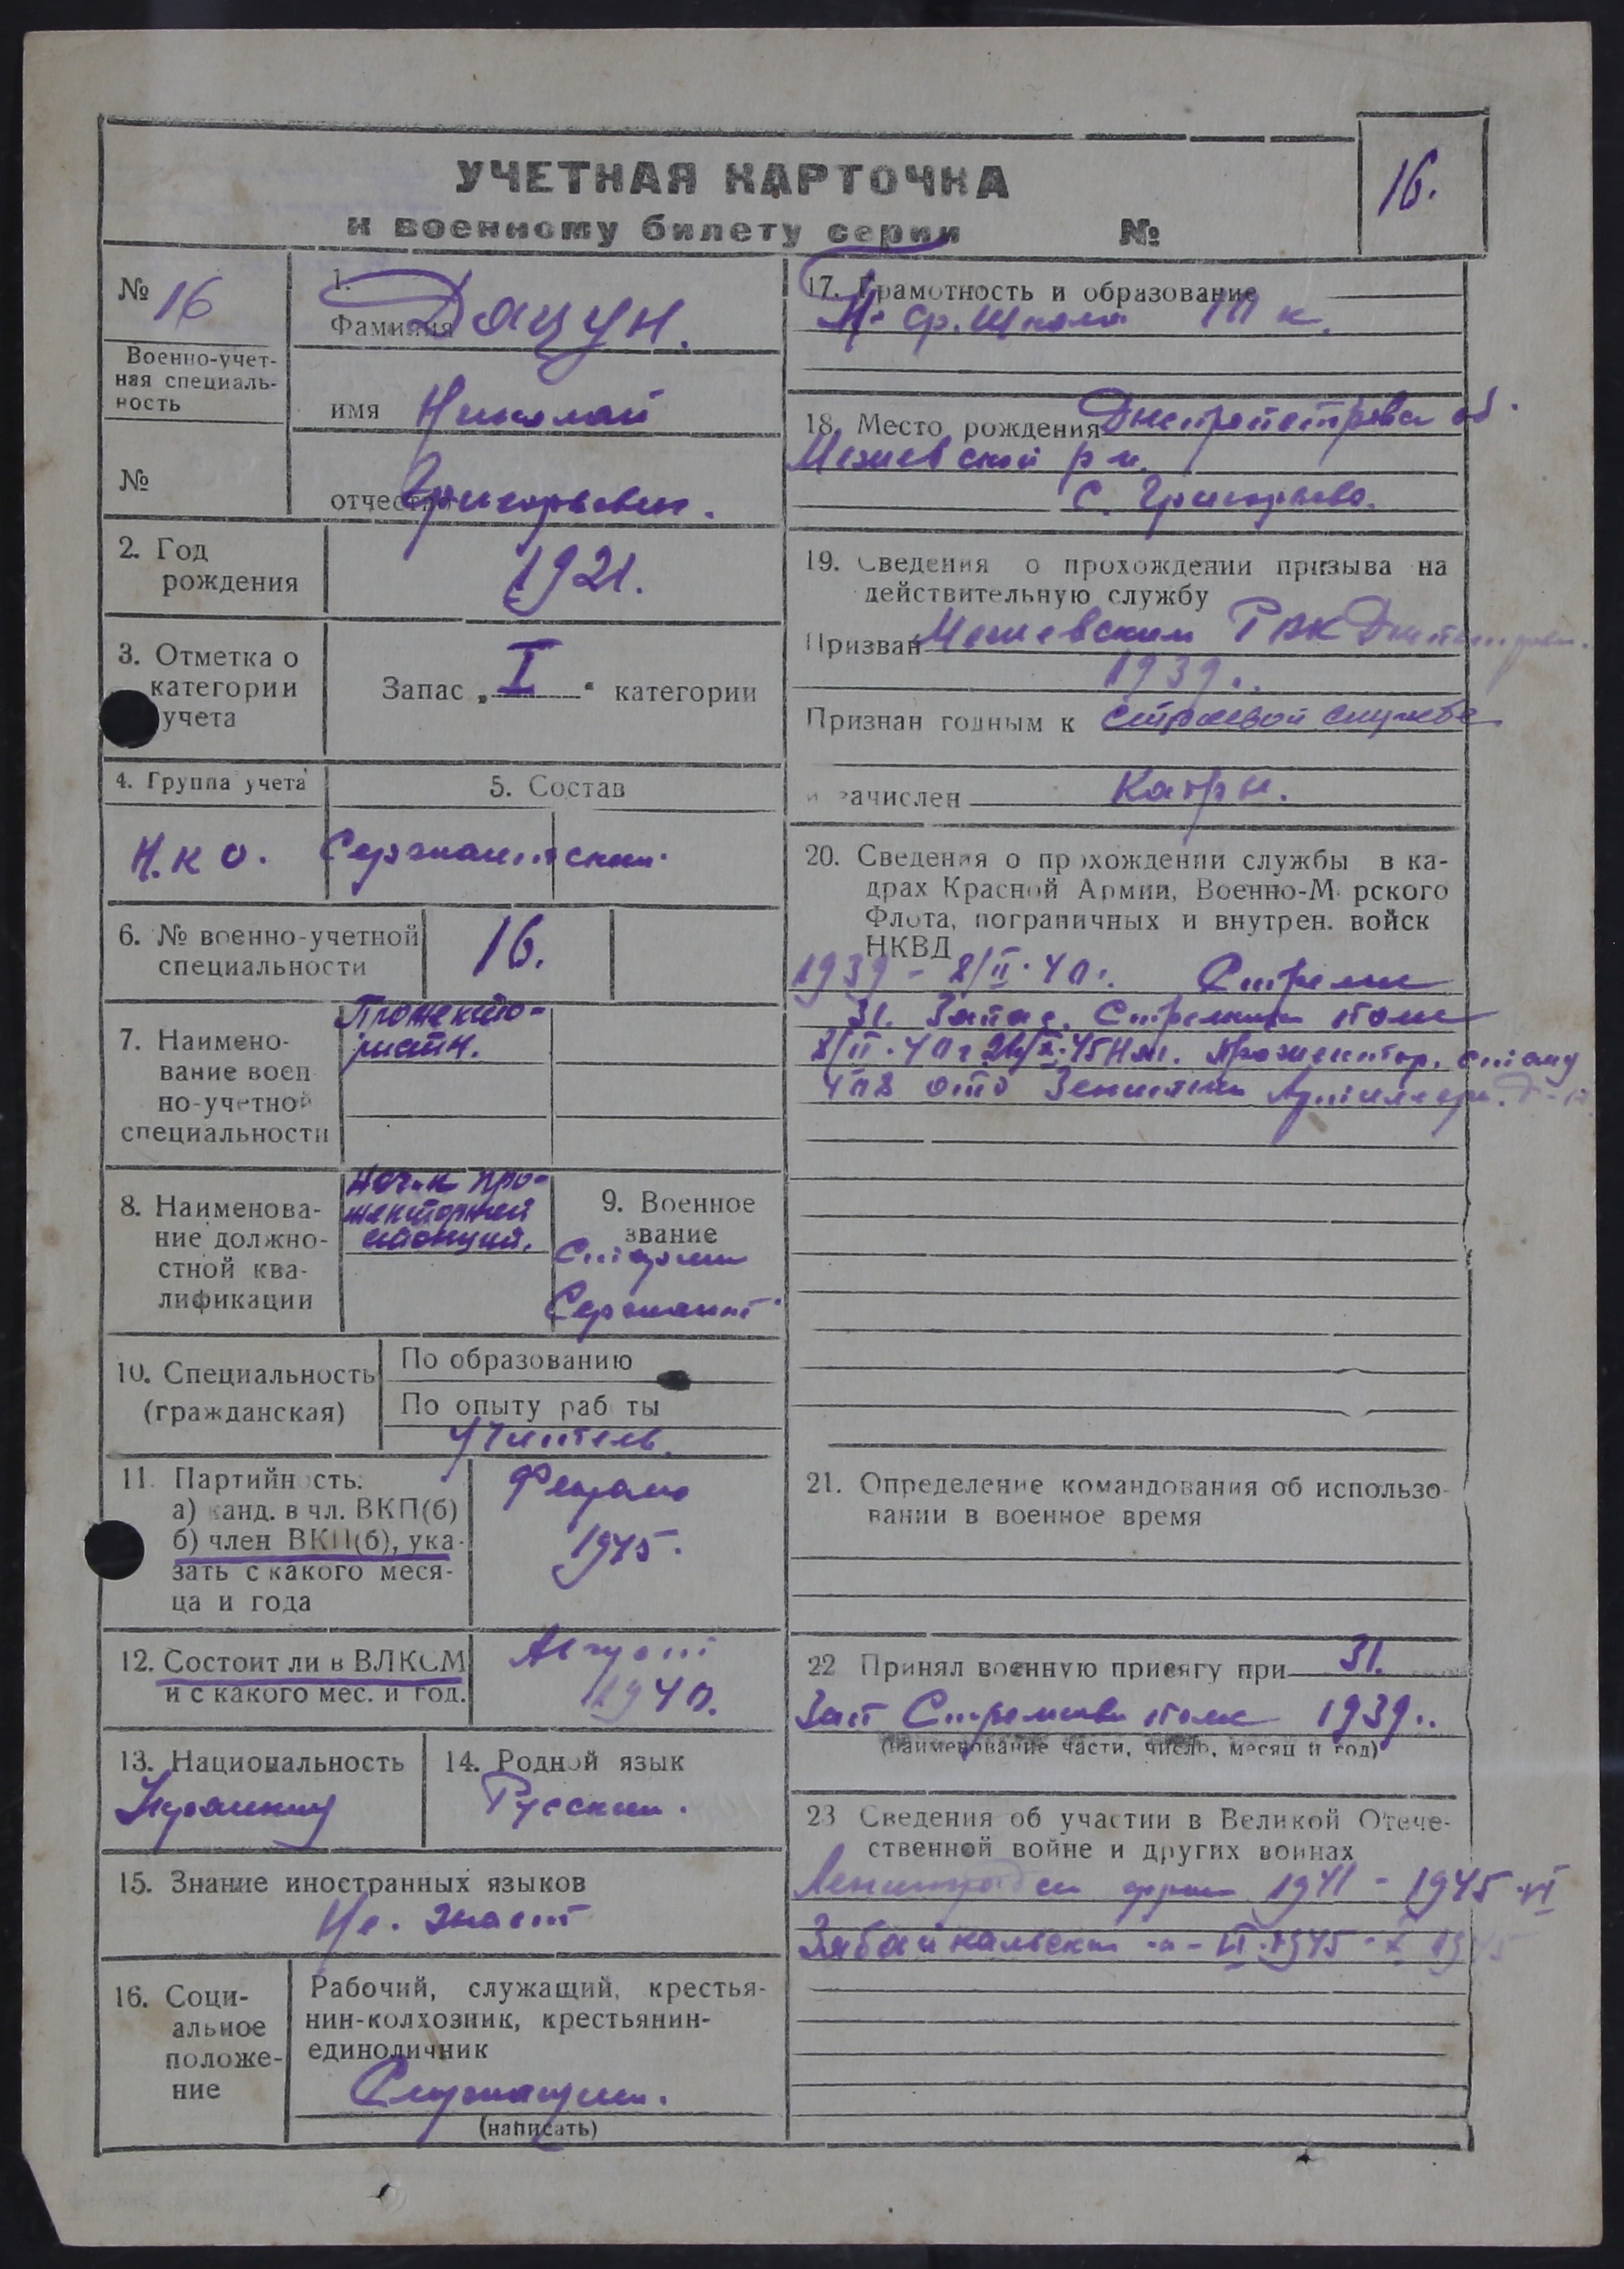 16.
УЧЕТНАЯ КАРТОЧКА
к военному билету серии №
№ 16
Военно-учет-
ная специаль-
ность
№
1.
Фамилия Дацун.
имя Николай
отчество Григорьевич.
2. Год
рождения
1921.
3. Отметка о
категории
учета
Запас „ I “ категории
4. Группа учета
Н.К О.
5. Состав
Сержантский
6. № военно-учетной
специальности
16.
7. Наимено-
вание воен
но-учетной
специальности
Прожекто-
8. Наименова-
ние должно-
стной ква-
лификации
Нач-к про-
жекторной
станции.
9. Военное
звание
Старший
Сержант
10. Специальность
(гражданская)
По образованию
По опыту раб ты
Учитель.
11. Партийность.
а) канд. в чл. ВКП(б)
б) член ВКП(б), ука-
зать с какого меся-
ца и года
1945.
12. Состоит ли в ВЛКСМ
и с какого мес. и год.
Август
1940.
13. Национальность
Украинец
14. Родной язык
Русский.
15. Знание иностранных языков
Не. знает
16. Соци-
альное
положе-
ние
Рабочий, служащий, крестья-
нин-колхозник, крестьянин-
единоличник
Служащий.
(написать)
17. Грамотность и образование
ср. школа 10 к.
18. Место рождения Днепропетровск об.
Межевской р н.
с. Григорьево.
19. Сведения о прохождении призыва на
действительную службу
Призван Межевским РВК
1939..
Признан годным к строевой службе
и зачислен
20. Сведения о прохождении службы в ка-
драх Красной Армии, Военно-М рского
Флота, пограничных и внутрен. войск
НКВД
1939 - 8/II·40. Стрелок
31. Запас. Стрелков полк
8/II·40г Прожектор. станц
отд Зенитни Артиллери.
21. Определение командования об использо-
вании в военное время
22 Принял военную присягу при 31.
Зап Стрелков полк 1939..
(наименование части, число, месяц и год)
23 Сведения об участии в Великой Отече-
ственной войне и других войнах
Ленинградск фрон 1941 - 1945·VI
Забайкальски -"- VI·1945 - X 1945